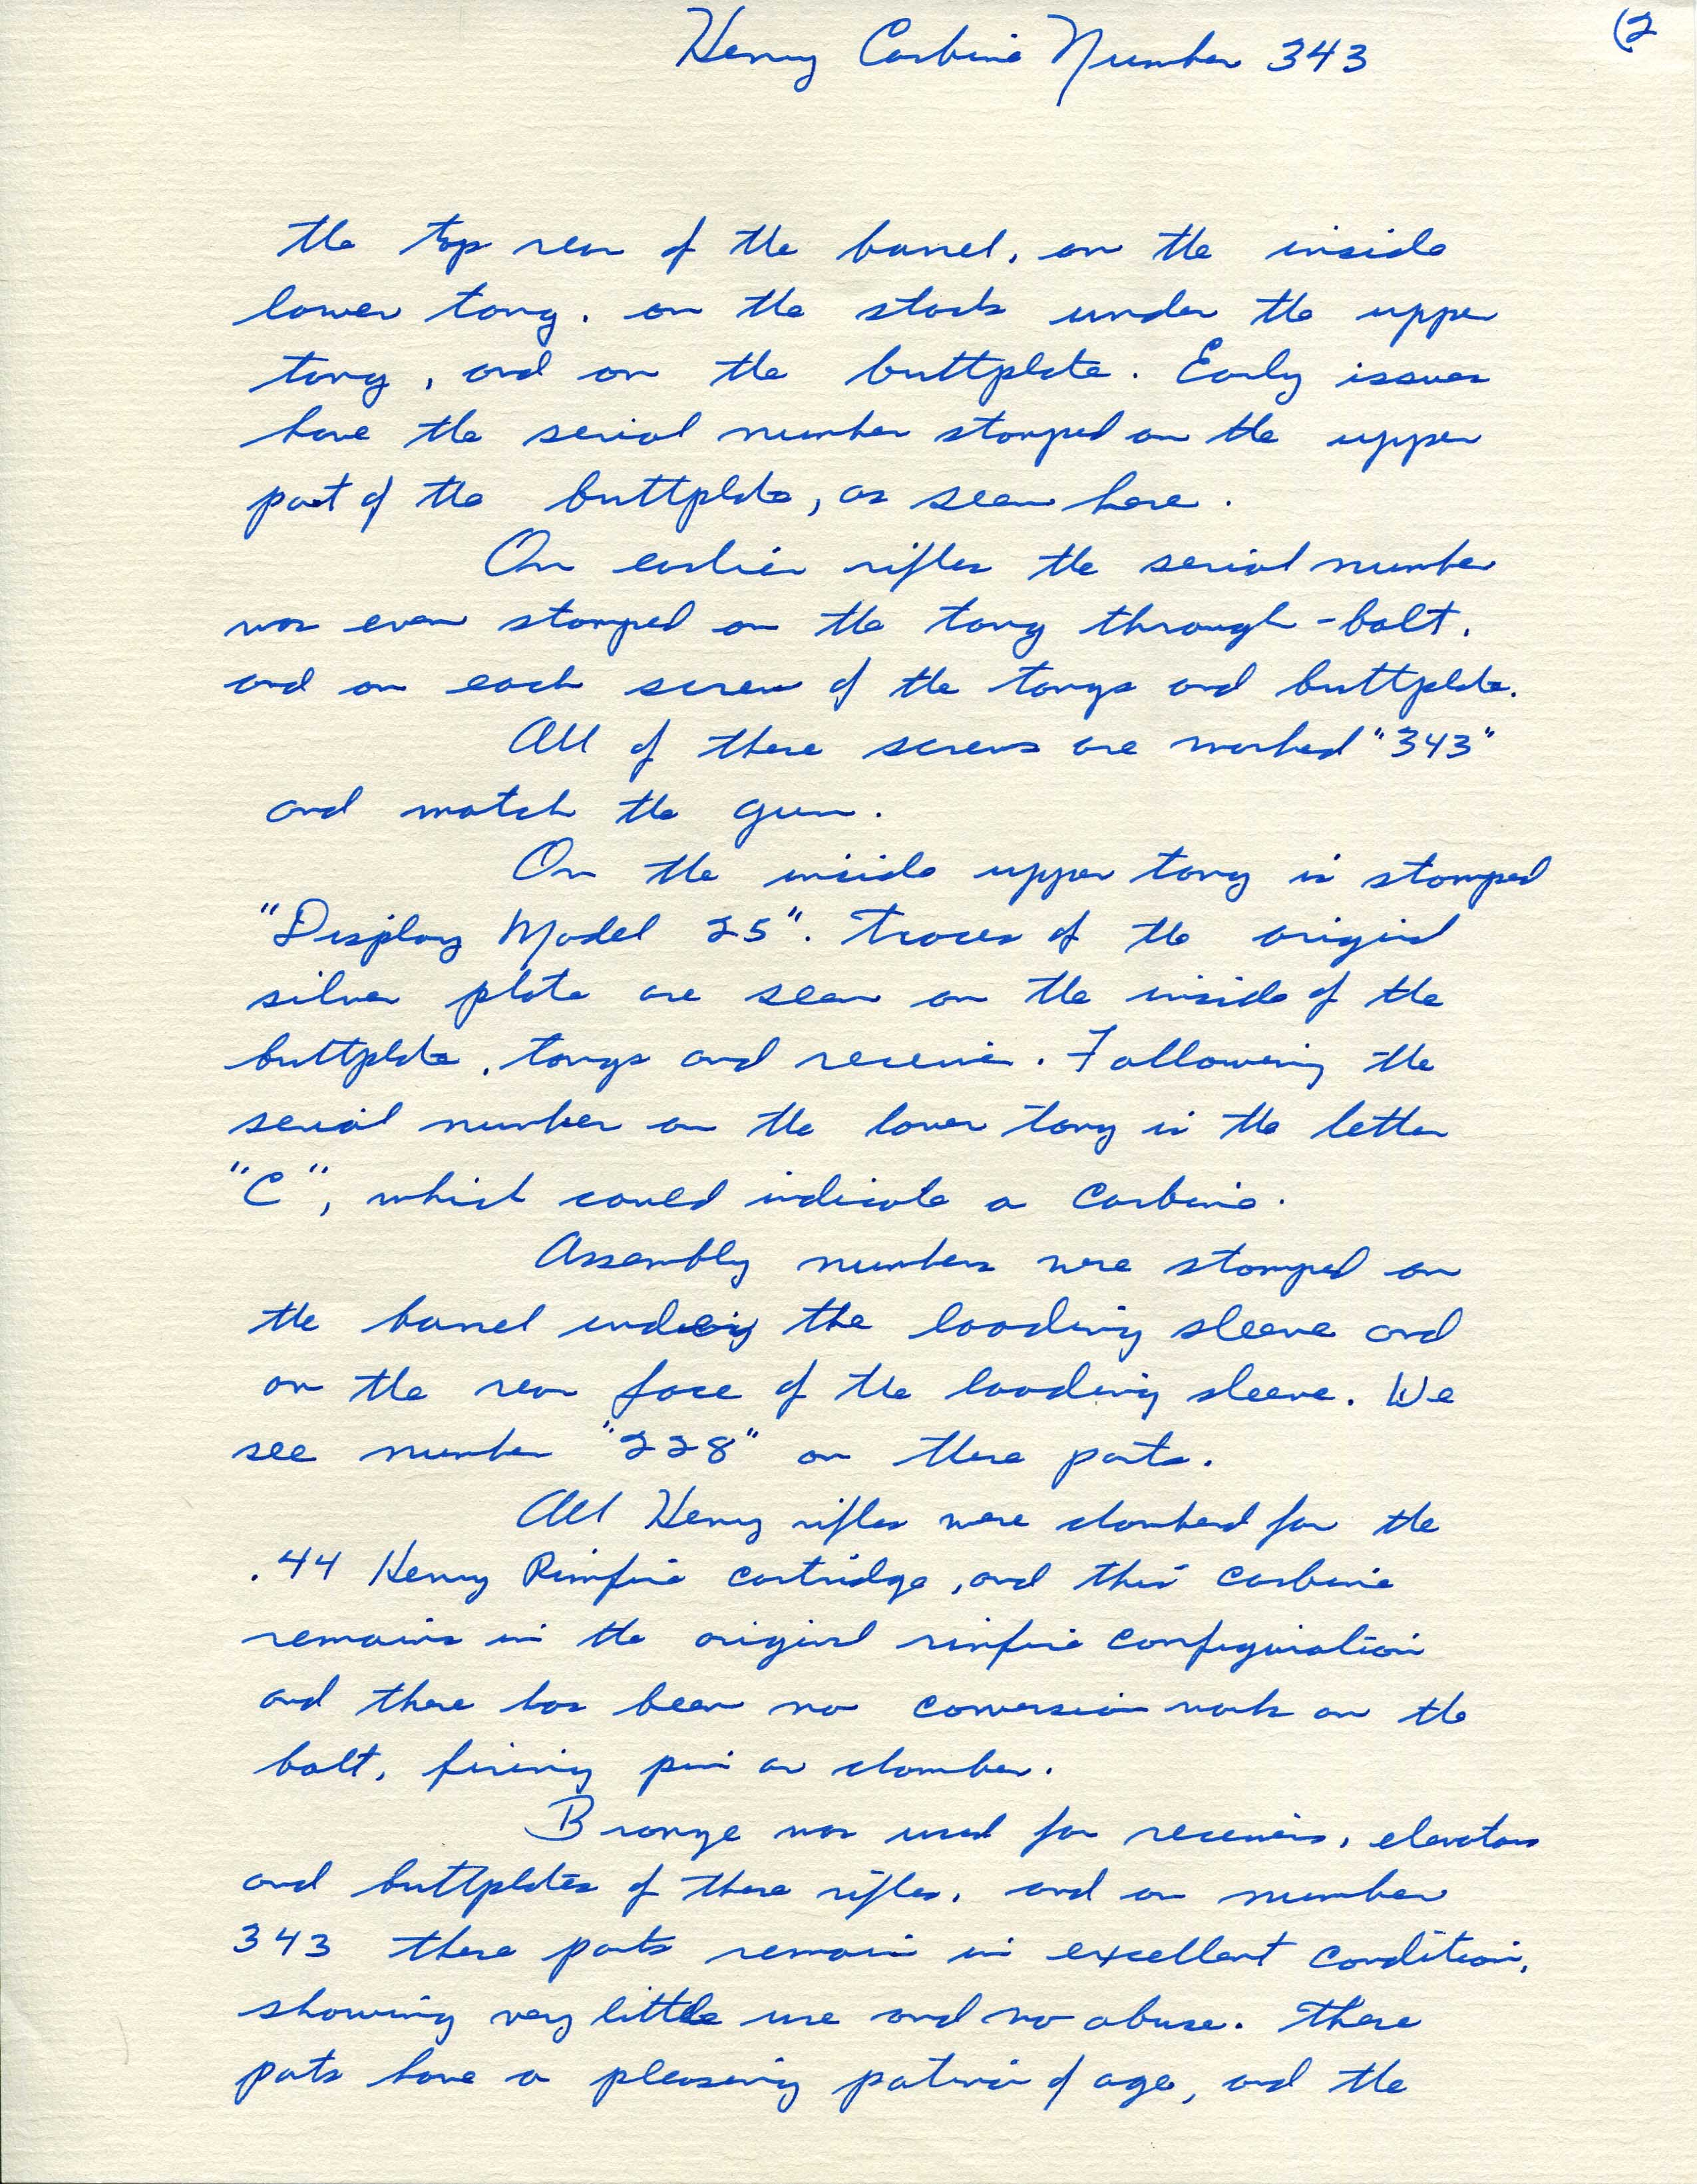 Henry Carbine Number 343
(2
the top rear of the barrel, on the inside
lower tang, on the stock under the upper
tang, and on the buttplate. Early issues
have the serial number stamped on the upper
part of the buttplate, as seen here.
On earlier rifles the serial number
was even stamped on the tang through-bolt,
and on each screw of the tangs and buttplate.
All of these screws are marked "343"
and match the gun.
On the inside upper tang is stamped
"Display Model 25". Traces of the original
silver plate are seen on the inside of the
buttplate, tangs and receiver. Following the
serial number on the lower tang is the letter
"C", which could indicate a carbine.
Assembly numbers were stamped on
the barrel the loading sleeve and
on the rear face of the loading sleeve. We
see number "228" on these parts.
All Henry rifles were chambered for the
.44 Henry Rimfire cartridge, and this carbine
remains in the original rimfire configuration
and there has been no conversion work on the
bolt, firing pin or chamber.
Bronze was used for receivers, elevators
and buttplates of these rifles, and on number
343 these parts remain in excellent condition,
showing very little use and no abuse. These
parts have a pleasing patina of age, and the